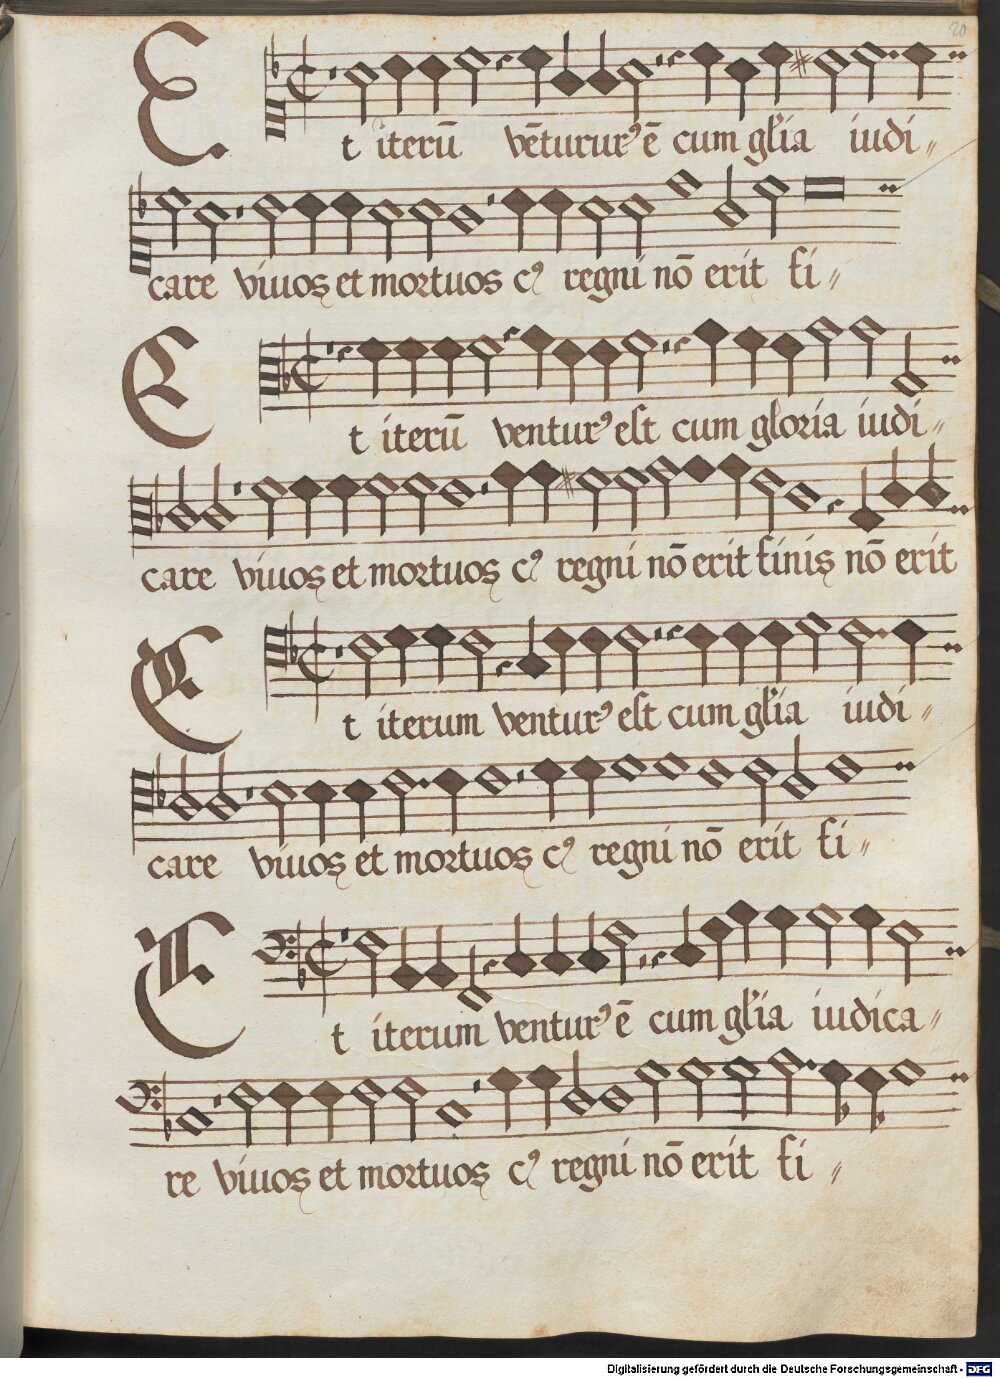 20
Et iterū vēturur⁹ ē cum gl'ia iudi〃
care viuos et mortuos c⁹ regni nō erit fi〃
Et iterū ventur⁹ est cum gloria iudi〃
care viuos et mortuos c⁹ regni nō erit finis nō erit
Et iterum ventur⁹ est cum gl'ia iudi〃
care viuos et mortuos c⁹ regni nō erit fi〃
Et iterum ventur⁹ ē cum gl'ia iudica〃
re viuos et mortuos c⁹ regni nō erit fi〃
Digitalisierung gefördert durch die Deutsche Forschungsgemeinschaft - DFG